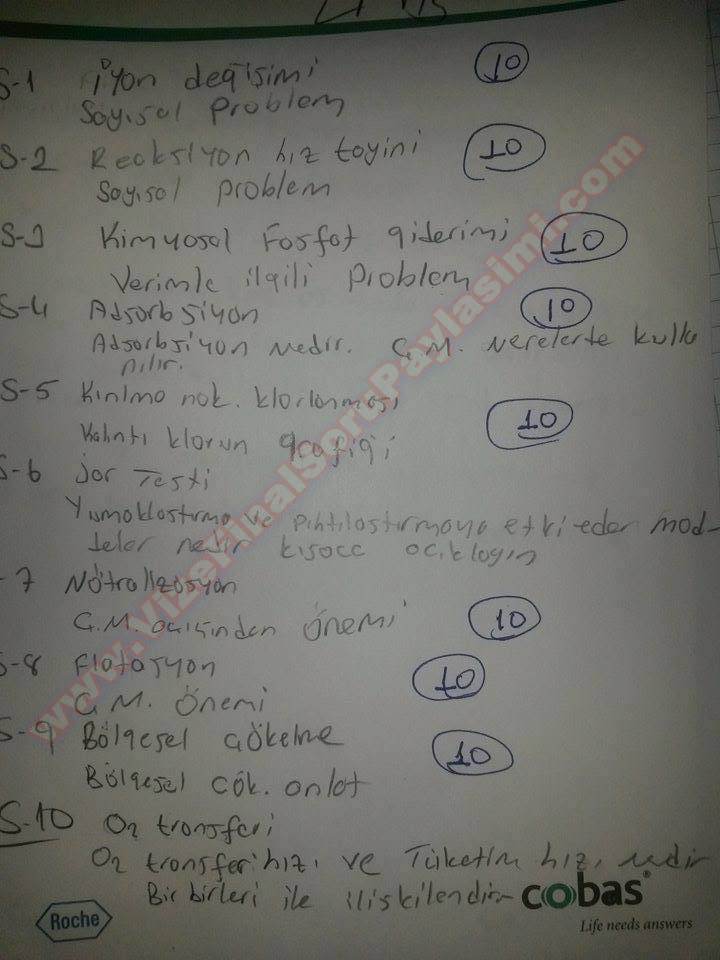 S-1 İyon değişimi 10
Sayısal Problem
S-2 Reaksiyon hız tayini 10
Sayısal problem
S-3 Kimyasal Fosfat giderimi 10
Verimle ilgili Problem
S-4 Adsorbsiyon 10
Adsorbsiyon Nedir. Ç.M. Nerelerte kulla
nılır.
S-5 Kırılma nok. klorlanması
Kalıntı klorun grafiği 10
S-6 Jar Testi
Yumaklaştırma ve Pıhtılaştırmaya etki eder mad-
deler nedir kısaca açıklayın
-7 Nötralizasyon
Ç.M. açısından önemi 10
S-8 Flotasyon 10
Ç.M. Önemi
S-9 Bölgesel çökelme 10
Bölgesel çök. anlat
S-10 O2 transferi
O2 transferi hızı ve Tüketim hızı nedir
Bir birleri ile ilişkilendir
Roche
cobas®
Life needs answers
www.VizeFinalSoruPaylasimi.com